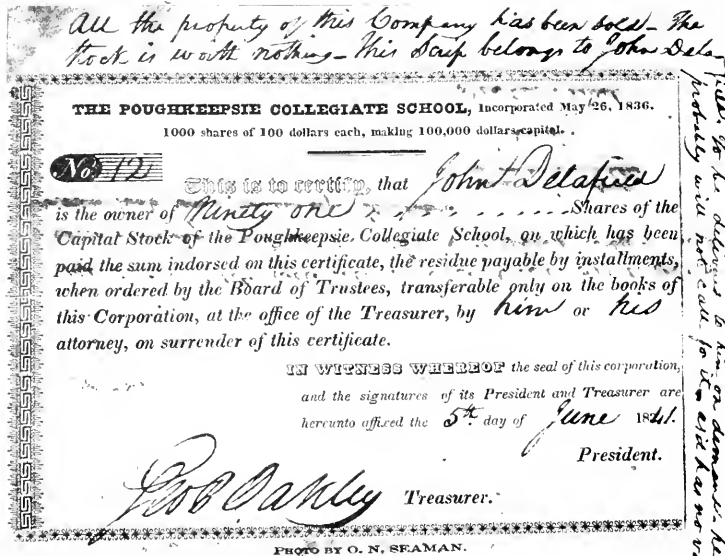 All the property of this Company has been sold – The
stock is worth nothing – This Scrip belongs to John Dela
field to be delivered to him on demand. He
probably will not call for it – as it has no v
THE POUGHKEEPSIE COLLEGIATE SCHOOL, Incorporated May 26, 1836.
1000 shares of 100 dollars each, making 100,000 dollars capital.
No 12
This is to certify, that John Delafield
is the owner of Ninety one Shares of the
Capital Stock of the Poughkeepsie Collegiate School, on which has been
paid the sum indorsed on this certificate, the residue payable by installments,
when ordered by the Board of Trustees, transferable only on the books of
this Corporation, at the office of the Treasurer, by him or his
attorney, on surrender of this certificate.
IN WITNESS WHEREOF the seal of this corporation,
and the signatures of its President and Treasurer are
hereunto affixed the 5th day of June 1841.
President.
Geo P Oakley Treasurer.
PHOTO BY O. N. SEAMAN.